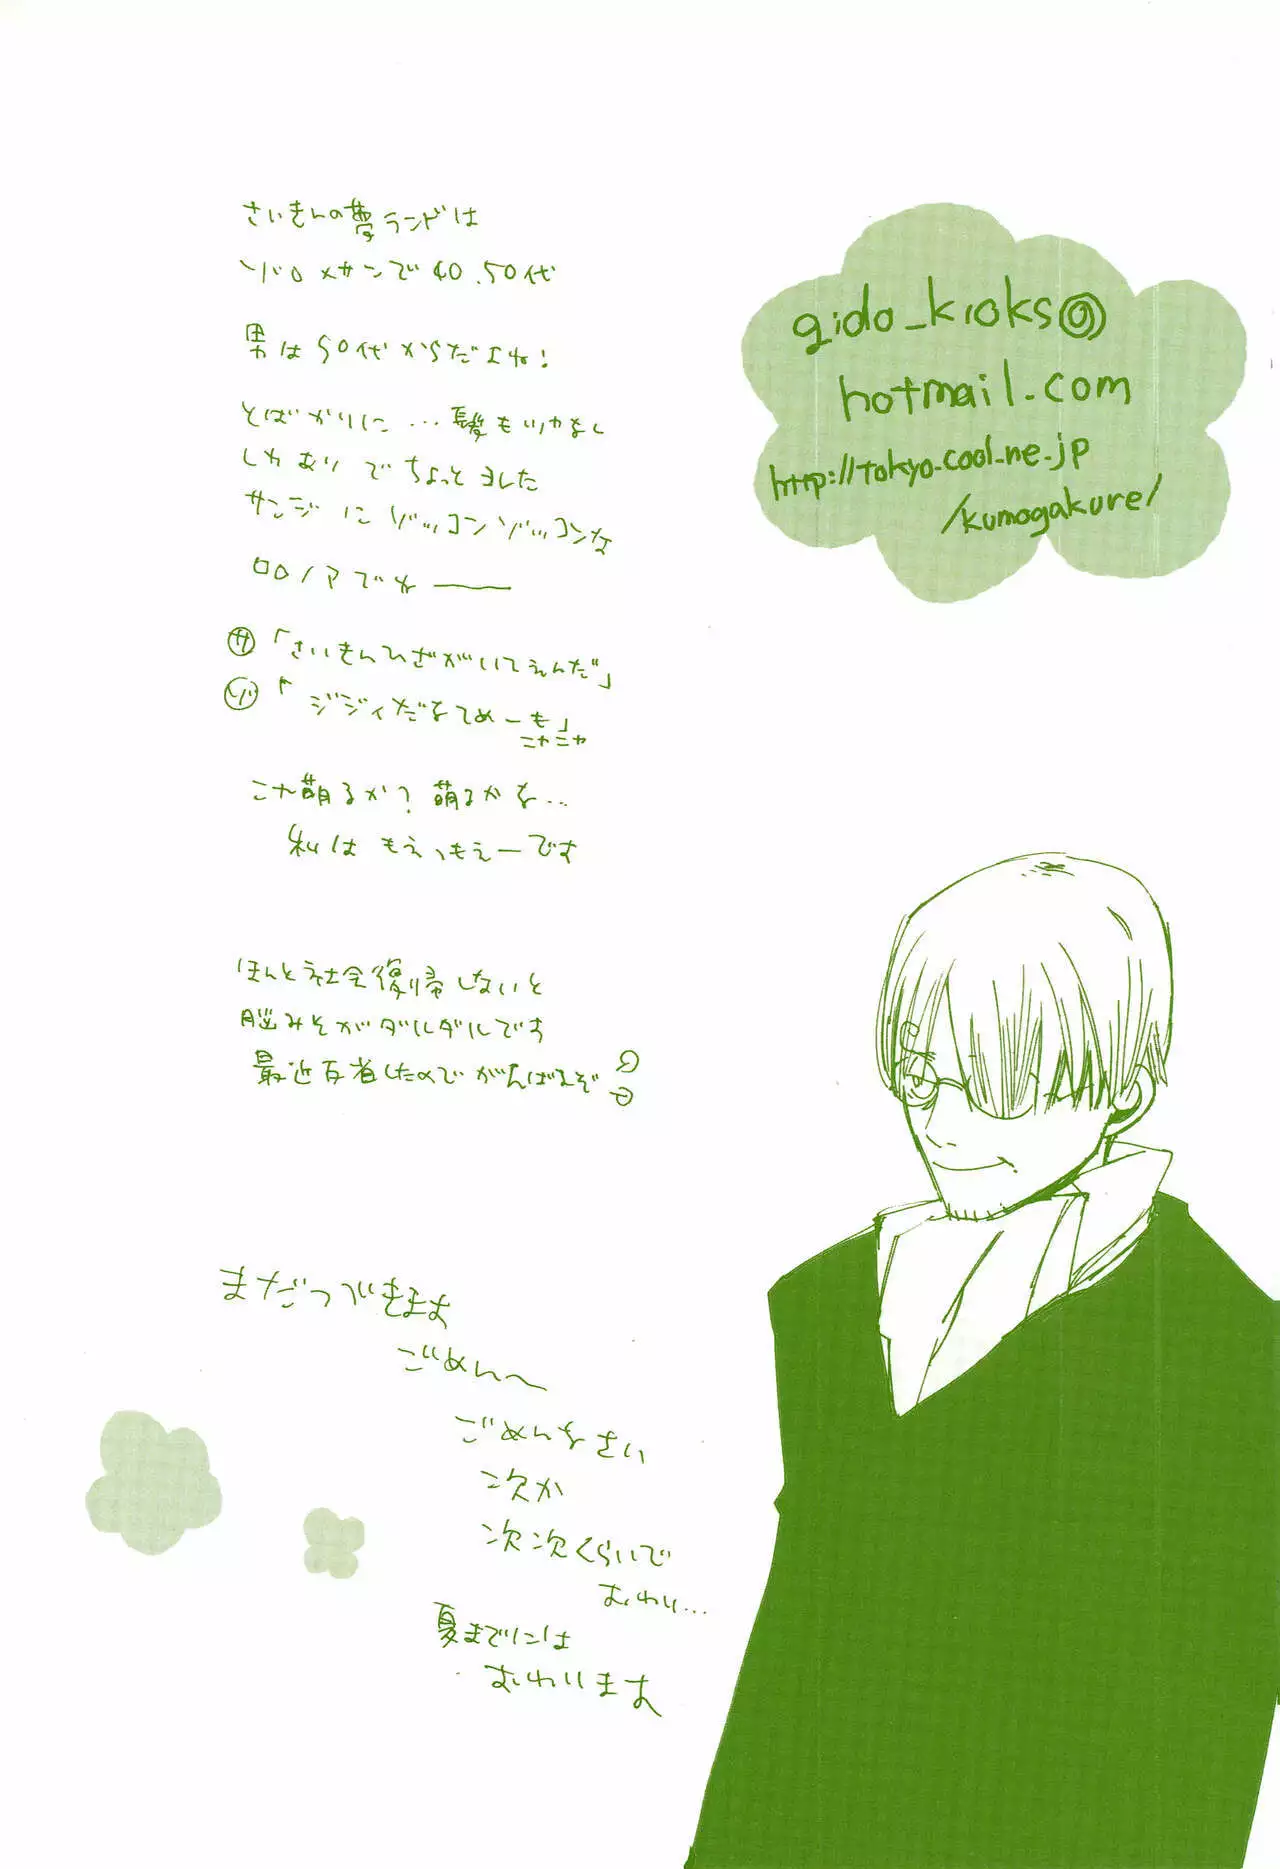 さいきんの夢ランドは
ゾロ×サンで40.50代
男は50代からだよね!
とばかりに…髪もツヤなし
しわありでちょっとヨレた
サンジにゾッコンゾッコンな
ロロノアでね——
サ「さいきんひざがいてえんだ」
ゾ「ジジィだなてめーも」
ニヤニヤ
こや萌るか?萌るかな…
私はもえっもえーです
ほんと社会復帰しないと
脳みそがダルダルです
最近反省したのでがんばるぞ
まだつづきます
ごめん〜
ごめんなさい
次か
次次くらいで
おわり…
夏までには
おわります
gido_kioks@
hotmail.com
http://tokyo.cool.ne.jp
/kumogakure/